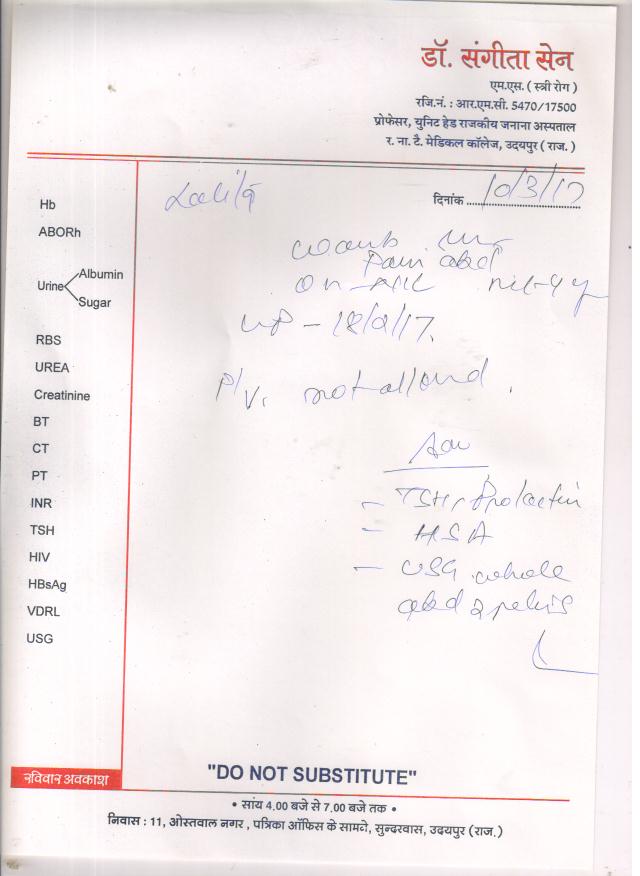 डॉ. संगीता सेन
एम.एस. ( स्त्री रोग )
रजि.नं. : आर.एम.सी. 5470/17500
प्रोफेसर, युनिट हेड राजकीय जनाना अस्पताल
र. ना. टै. मेडिकल कॉलेज, उदयपुर ( राज. )
दिनांक 10/3/17
Hb
ABORh
Urine Albumin
Sugar
RBS
UREA
Creatinine
BT
CT
PT
INR
TSH
HIV
HBsAg
VDRL
USG
Lalita
wants
Pain abd
on
LMP - 18/2/17.
P/V. not allowed.
Adv
- TSH, Prolactin
- HSA
- USG whole
abd & pelvis
रविवार अवकाश
"DO NOT SUBSTITUTE"
• सांय 4.00 बजे से 7.00 बजे तक •
निवास : 11, ओस्तवाल नगर , पत्रिका ऑफिस के सामने, सुन्दरवास, उदयपुर (राज.)